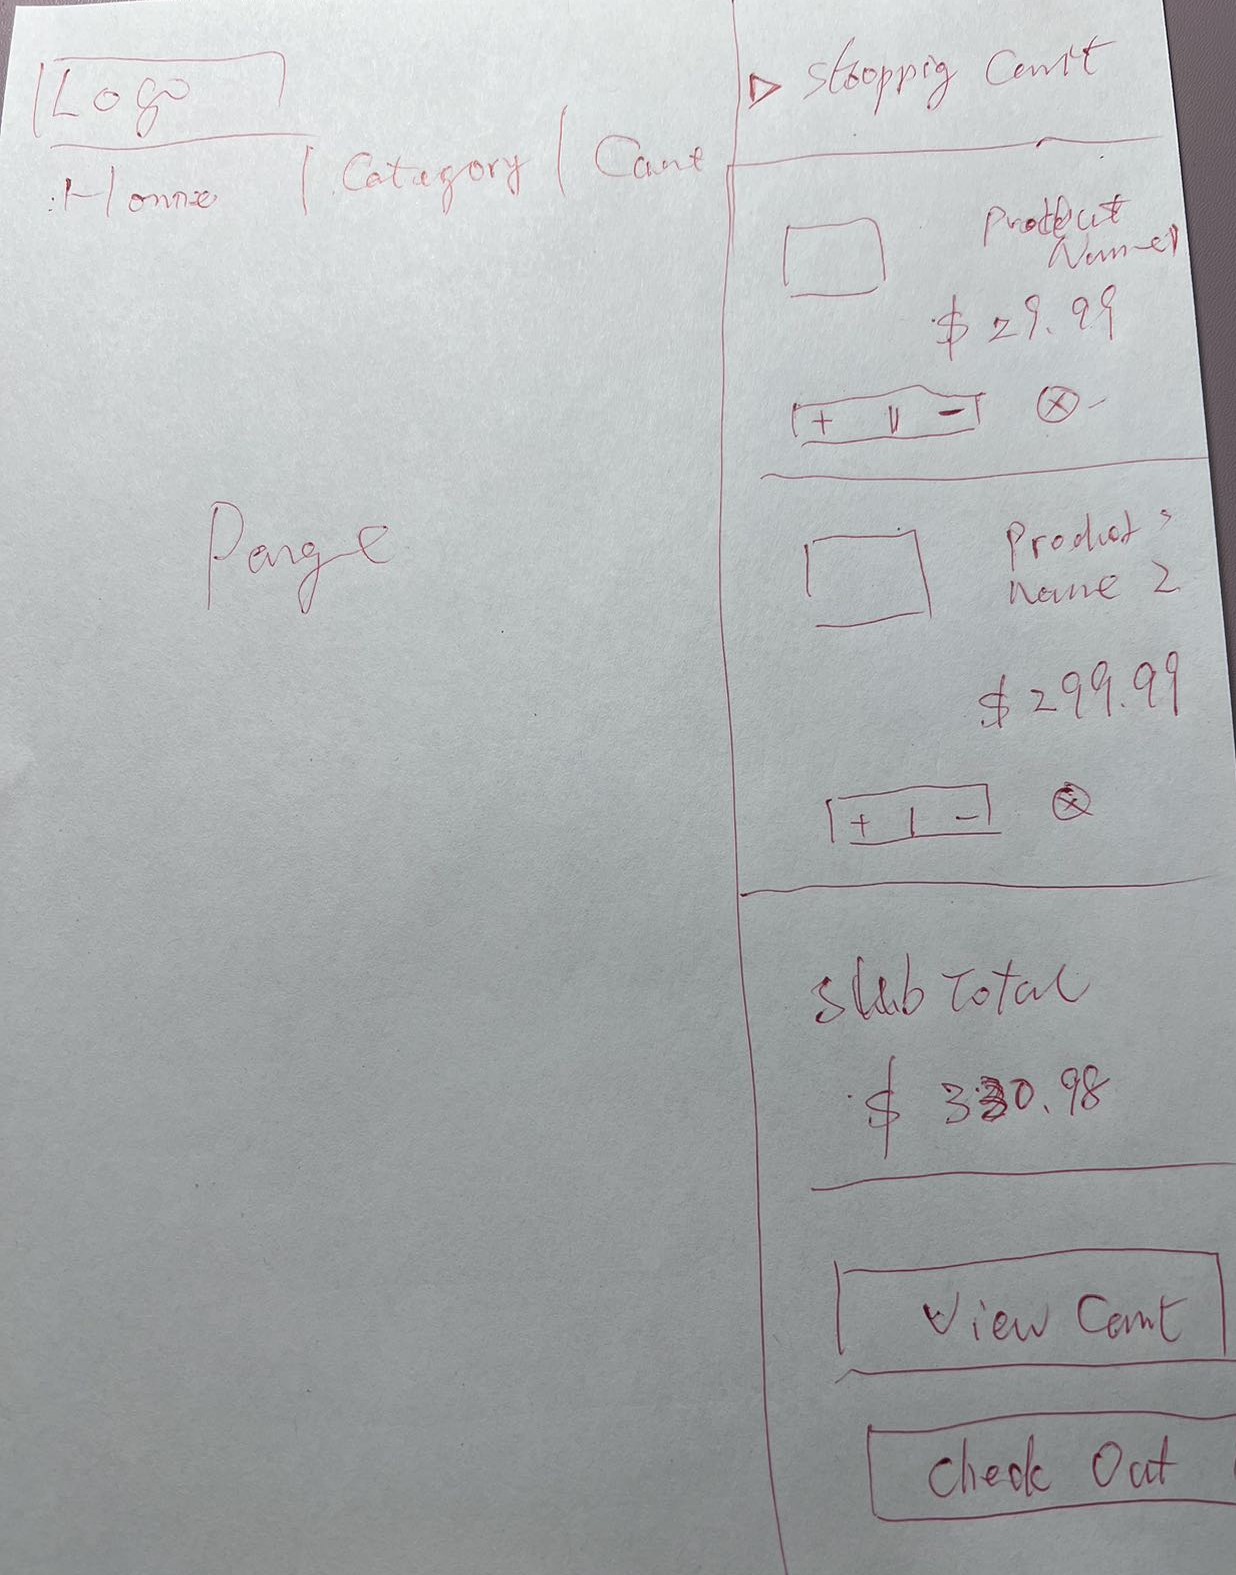 Logo
Home | Category | Cart
Page
Shopping Cart
Product
Name 1
$ 29.99
+ 1 -
Product
Name 2
$ 299.99
+ 1 -
Sub Total
$ 330.98
View Cart
Check Out